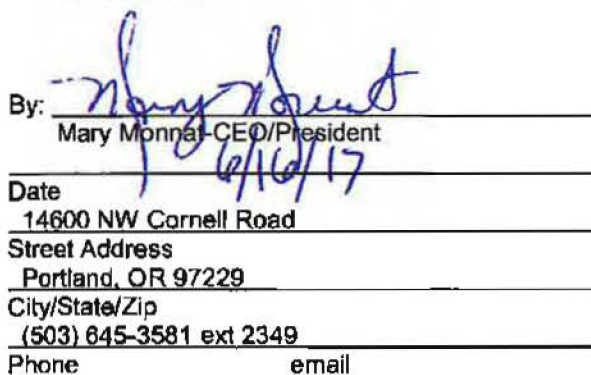 By: Mary Monnat
Mary Monnat-CEO/President
6/16/17
Date
14600 NW Cornell Road
Street Address
Portland, OR 97229
City/State/Zip
(503) 645-3581 ext 2349
Phone email